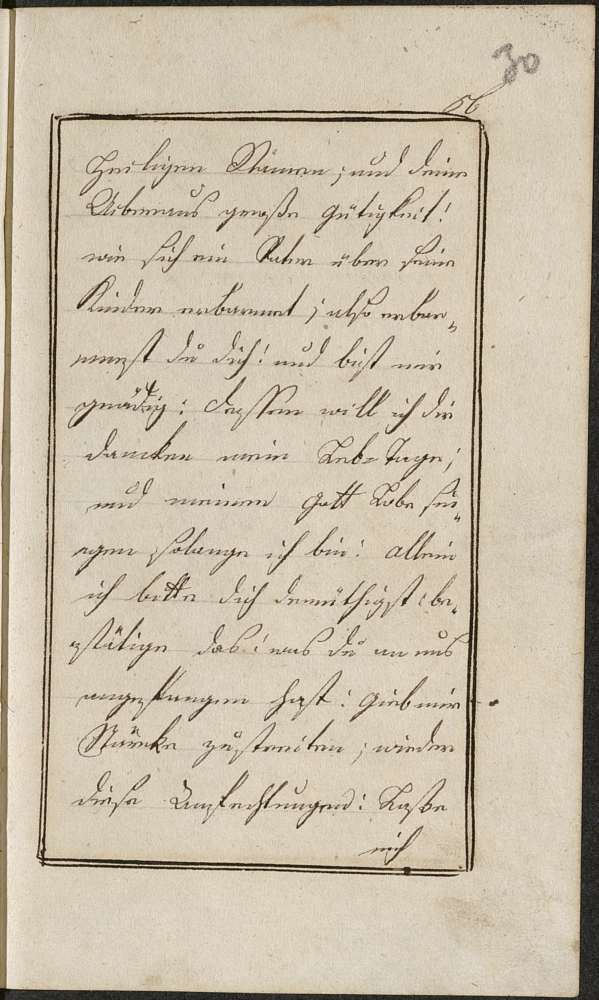 30
56
Heiligen Namen; und deine
Uiberaus große gütigkeit!
wie sich ein Vater über seine
Kinder erbarmet; also erbar-
mest du dich! und bist mir
gnädig: dessen will ich dir
dancken mein Leb-Tage;
und meinem Gott Lobe sin-
gen solange ich bin: allein
ich bitte dich demüthigst: be-
stätige das! was du an uns
angefangen hast: gieb mir
Stärcke zu streiten; wieder
diese Anfechtungen: Laße
mich